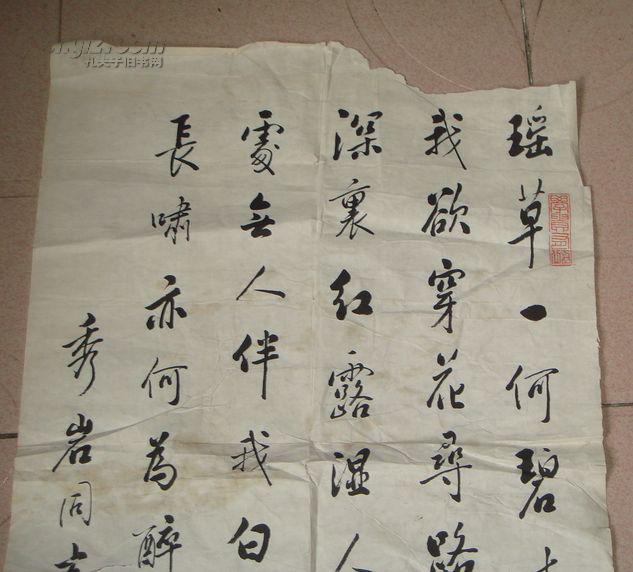 瑶草一何碧
我欲穿花尋路
深裏红露湿人
處無人伴我白
長嘯亦何為醉
秀岩同志
孔夫子旧书网